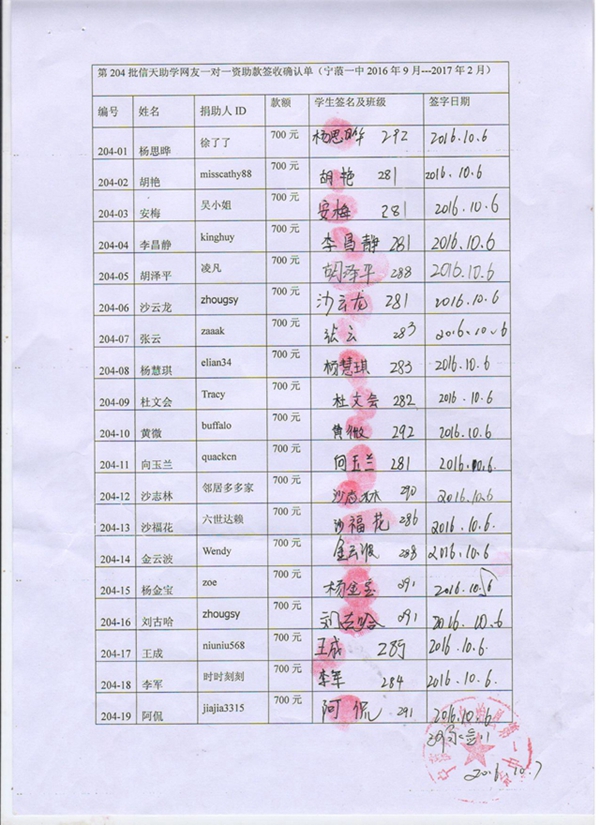 第 204 批信天助学网友一对一资助款签收确认单（宁蒗一中 2016 年 9 月---2017 年 2 月）
编号 姓名 捐助人 ID 款额 学生签名及班级 签字日期
204-01 杨思晔 徐了了 700 元 杨思晔 292 2016.10.6
204-02 胡艳 misscathy88 700 元 胡艳 281 2016.10.6
204-03 安梅 吴小姐 700 元 安梅 281 2016.10.6
204-04 李昌静 kinghuy 700 元 李昌静 281 2016.10.6
204-05 胡泽平 凌凡 700 元 胡泽平 288 2016.10.6
204-06 沙云龙 zhougsy 700 元 沙云龙 281 2016.10.6
204-07 张云 zaaak 700 元 张云 283 2016.10.6
204-08 杨慧琪 elian34 700 元 杨慧琪 283 2016.10.6
204-09 杜文会 Tracy 700 元 杜文会 282 2016.10.6
204-10 黄微 buffalo 700 元 黄微 292 2016.10.6
204-11 向玉兰 quackcn 700 元 向玉兰 281 2016.10.6
204-12 沙志林 邻居多多家 700 元 沙志林 290 2016.10.6
204-13 沙福花 六世达赖 700 元 沙福花 286 2016.10.6
204-14 金云波 Wendy 700 元 金云波 288 2016.10.6
204-15 杨金宝 zoe 700 元 杨金宝 291 2016.10.6
204-16 刘古哈 zhougsy 700 元 刘古哈 291 2016.10.6
204-17 王成 niuniu568 700 元 王成 285 2016.10.6
204-18 李军 时时刻刻 700 元 李军 284 2016.10.6
204-19 阿侃 jiajia3315 700 元 阿侃 291 2016.10.6
2016.10.7